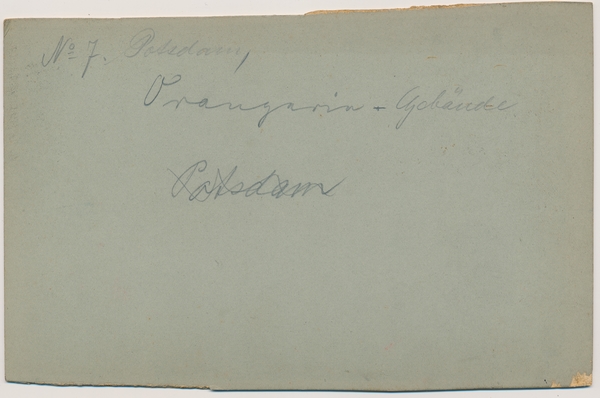 No 7. Potsdam,
Orangerie - Gebäude
Potsdam